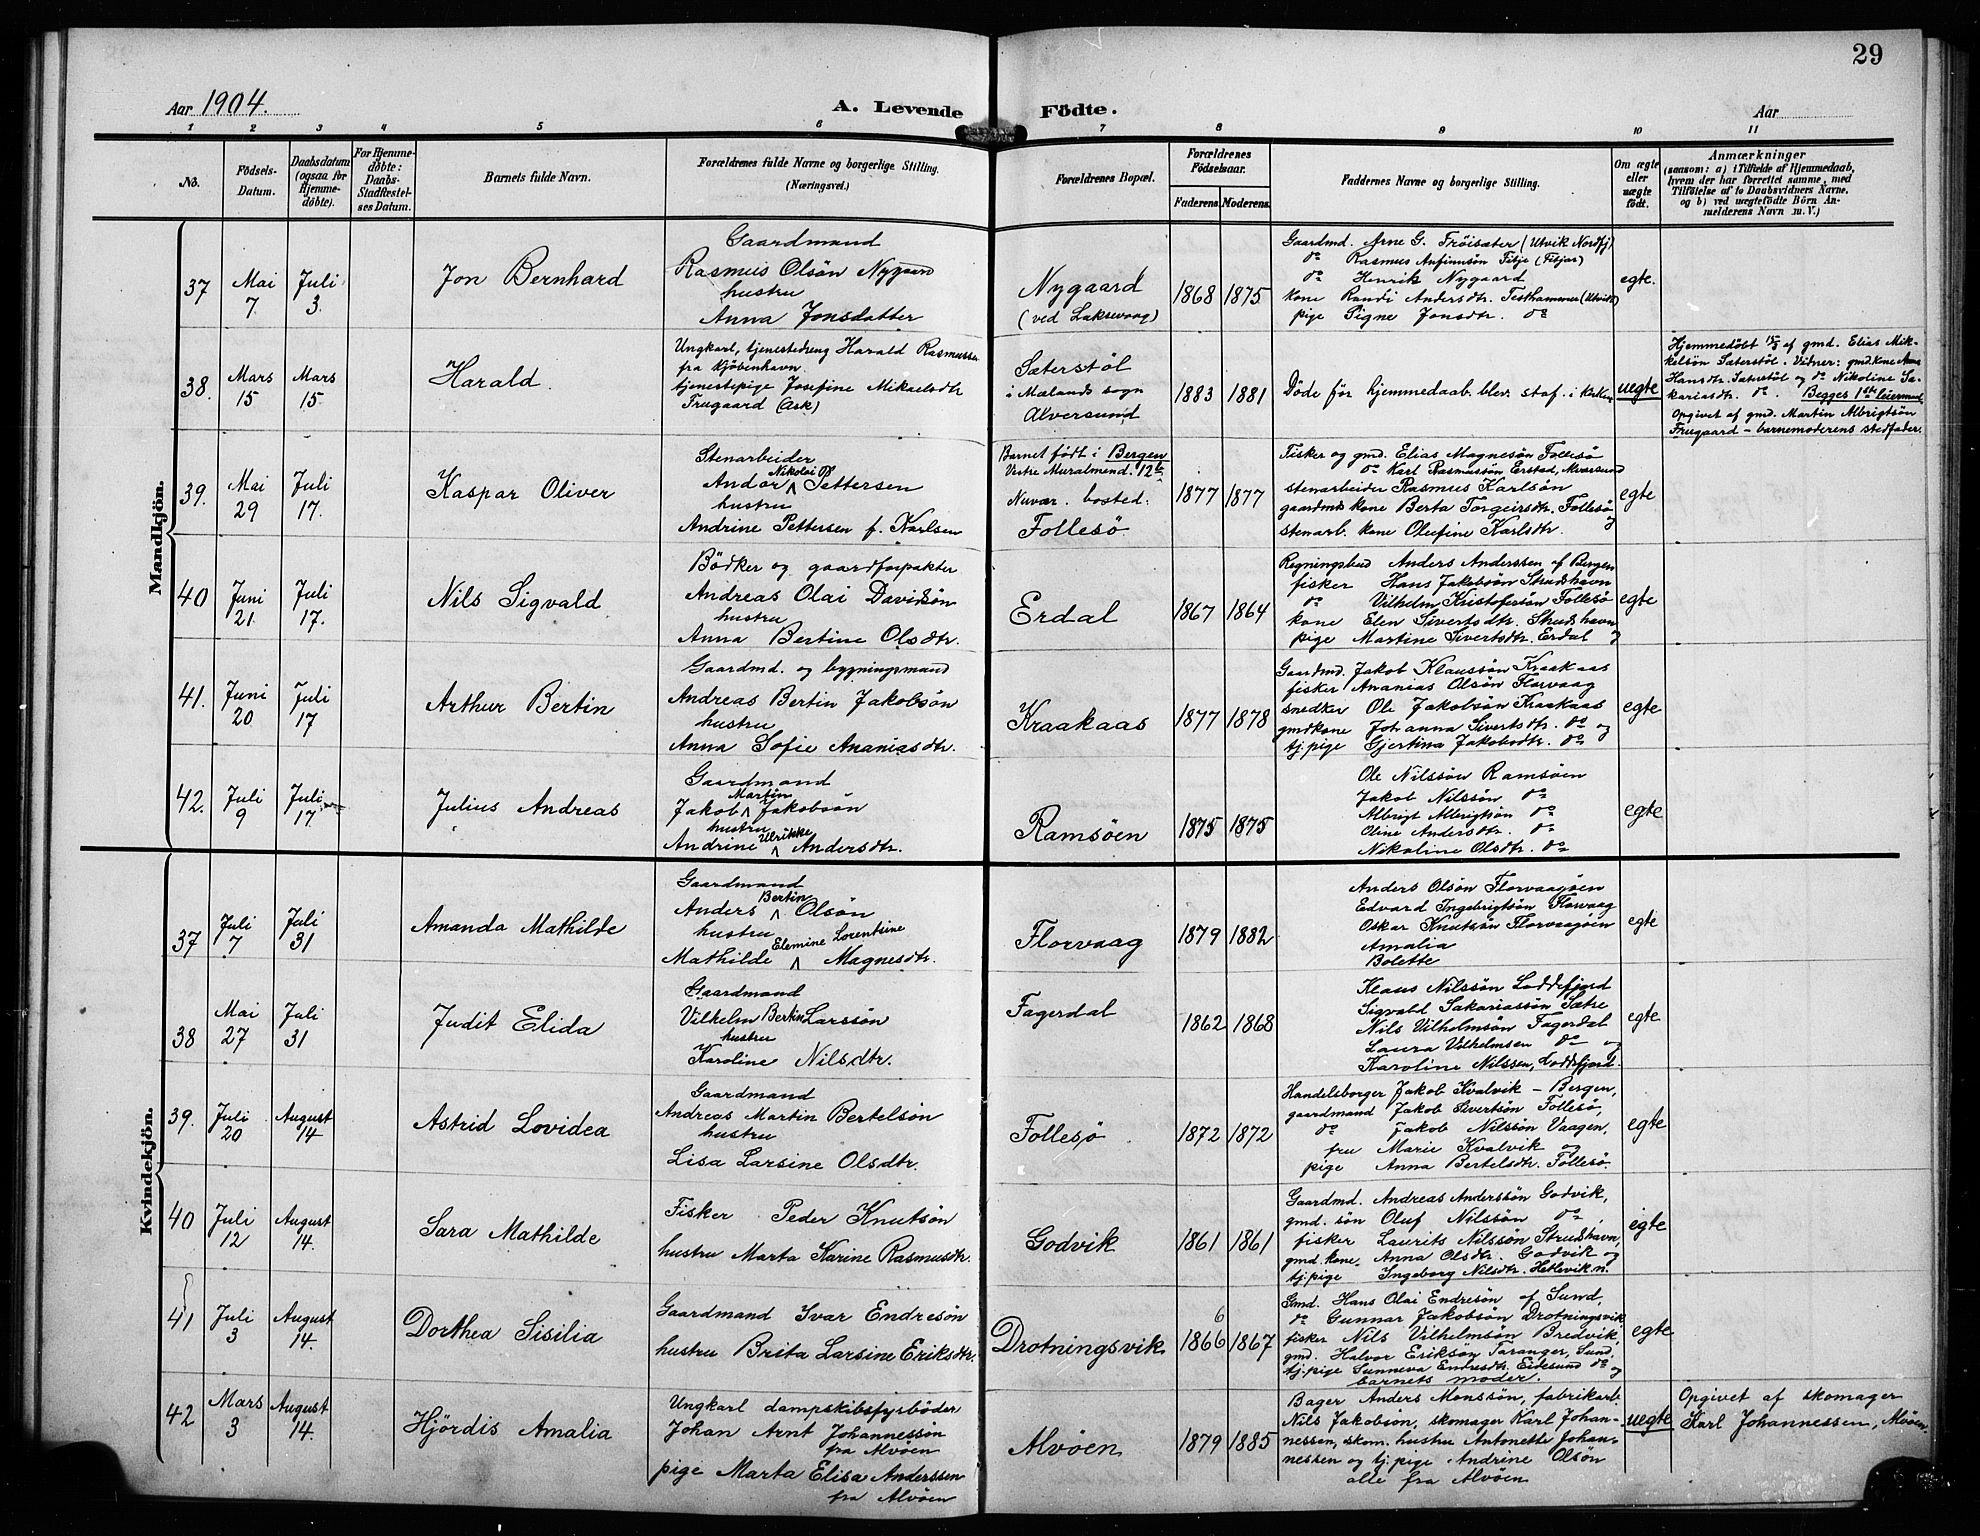 29
Aar 1904.
A. Levende Födte.
Aar
1 2 3 4 5 6 7 8 9 10 11
No.
Födsels-
Datum.
Daabsdatum
(ogsaa for
Hjemme-
döbte).
For Hjemme-
döbte:
Daabs-
Stadfæstel-
ses Datum.
Barnets fulde Navn.
Forældrenes fulde Navne og borgerlige Stilling.
(Næringsvei.)
Forældrenes Bopæl.
Forældrenes
Födselsaar.
Faderens. Moderens.
Faddernes Navne og borgerlige Stilling.
Om ægte
eller
uægte
födt.
Anmærkninger
(saasom: a) i Tilfælde af Hjemmedaab,
hvem der har forrettet samme, med
Tilföielse af to Daabsvidners Navne,
og b) ved uægtefödte Börn An-
melderens Navn m. V.)
Mandkjön.
37
Mai
7.
Juli
3.
Jon Bernhard
Gaardmand
Rasmus Olsön Nygaard
hustru
Anna Jonsdatter
Nygaard
(ved Laksevaag)
1868 1875
Gaardmd. Arne G. Tröisæter (Utvik Nordfj)
do Rasmus Anfinnsön Fitje (Fitjar)
do Henrik Nygaard
kone Randi Andersdtr. Testhammer (Utvik)
pige Signe Jonsdtr. do
egte.
38.
Mars
15
Mars
15.
Harald.
Ungkarl, tjenestedreng Harald Rasmussen
fra Kjöbenhavn.
tjenestepige Josefine Mikaelsdtr
Frugaard (Ask)
Sæterstöl
i Mælands sogn
Alversund
1883 1881
Döde för hjemmedaab. blev staf. i kirken
uegte
Hjemmedöbt 15/3 af gmd. Elias Mik-
kelsön Sæterstöl. Vidner: gmdkone Anna
Hansdtr. Sæterstöl og do Nikoline Sa-
kariasdtr. do. Begges 1ste leiermaal
Opgivet af gmd. Martin Albrigtsön
Frugaard – barnemoderens stedfader.
39.
Mai
29
Juli
17.
Kaspar Oliver
Stenarbeider
Andor Nikolai Pettersen
hustru
Andrine Pettersen f. Karlsen
Barnet födt i Bergen
Vestre Muralmend. 12b
Nuvær. bosted:
Follesö
1877 1877
Fisker og gmd. Elias Magnesön Follesö
do Karl Rasmussön Erstad, Alversund
stenarbeider Rasmus Karlsön
gaardmds kone Berta Torgeirsdtr. Follesö
og
stenarb. kone Olufine Karlsdtr.
egte
40
Juni
21.
Juli
17.
Nils Sigvald
Bödker og gaardforpakter
Andreas Olai Davidsön
hustru
Anna Bertine Olsdtr.
Erdal
1867 1864
Regningsbud Anders Anderssen af Bergen
fisker Hans Jakobsön Strudshavn
do Vilhelm Kristofersön Follesö
kone Elen Sivertsdtr. Strudshavn
pige Martine Sivertsdtr. Erdal og
egte
41.
Juni
20
Juli
17
Arthur Bertin
Gaardmd. og bygningsmand
Andreas Bertin Jakobsön
hustru
Anna Sofie Ananiasdtr.
Kraakaas
1877 1878
Gaardmd. Jakob Klaussön Kraakaas
fisker Ananias Olsön Florvaag
snedker Ole Jakobsön Kraakaas
gmdkone Johanna Sivertsdtr. do og
tj.pige Gjertina Jakobsdtr. do
egte
42.
Juli
9
Juli
17.
Julius Andreas
Gaardmand
Jakob Martin Jakobsön
hustru
Andrine Ulrikke Andersdtr.
Ramsöen
1875 1875
Ole Nilssön Ramsöen
Jakob Nilssön do
Albrigt Albrigtsön do
Oline Andersdtr. do
Nikoline Olsdtr. do
egte
Kvindekjön.
37
Juli
7
Juli
31
Amanda Mathilde
Gaardmand
Anders Bertin Olsön
hustru
Mathilde Elemine Lorentsine Magnesdtr.
Florvaag
1879 1882
Anders Olsön Florvaagöen
Edvard Ingebrigtsön Florvaag
Oskar Knutsön Florvaagöen
Amalia
Bolette
egte
38
Mai
27
Juli
31
Judit Elida
Gaardmand
Vilhelm Bertin Larssön
hustru
Karoline Nilsdtr.
Fagerdal
1862 1868
Klaus Nilssön Loddefjord
Sigvald Sakariassön Sætre
Nils Vilhelmsön Fagerdal
Laura Vilhelmsen do og
Karoline Nilssen, Loddefjord.
egte
39.
Juli
20
August
14
Astrid Lovidea
Gaardmand
Andreas Martin Bertelsön
hustru
Lisa Larsine Olsdtr.
Follesö
1872 1872
Handelsborger Jakob Kvalvik – Bergen,
gaardmand Jakob Sivertsön Follesö,
do Jakob Nilssön Vaagen,
fru Marie Kvalvik og
pige Anna Bertelsdtr. Follesö.
egte
40
Juli
12
August
14.
Sara Mathilde
Fisker Peder Knutsön
hustru Marta Karine Rasmusdtr.
Godvik
1861 1861
Gaardmd. Andreas Anderssön Godvik,
gmd. sön Oluf Nilssön do,
fisker Laurits Nilssön Strudshavn,
gmd. kone, Anna Olsdtr. Godvik og
tj.pige Ingeborg Nilsdtr. Hetlevik n.
egte
41
Juli
3
August
14.
Dorthea Sisilia
Gaardmand Ivar Endresön
hustru Brita Larsine Eriksdtr.
Drotningsvik
6
1866 1867
Gmd. Hans Olai Endresön af Sund,
do Gunnar Jakobsön Drotningsvik
fisker Nils Vilhelmsön Bredvik,
gmd. Halvor Eriksön Taranger, Sund,
tj.pige Sunneva Endresdtr. Eidesund do og
barnets moder.
egte
42
Mars
3
August
14.
Hjördis Amalia
Ungkarl dampskibsfyrböder
Johan Arnt Johannessön
fra Alvöen
pige Marta Elisa Anderssen
fra Alvöen
Alvöen
1879 1885
Bager Anders Monssön, fabrikarb.
Nils Jakobson, skomager Karl Johan-
nessen, skom. hustru Antonette Johan-
nessen og tj.pige Andrine Olsön
alle fra Alvöen
uegte
Opgivet af skomager
Karl Johannessen, Alvöen.